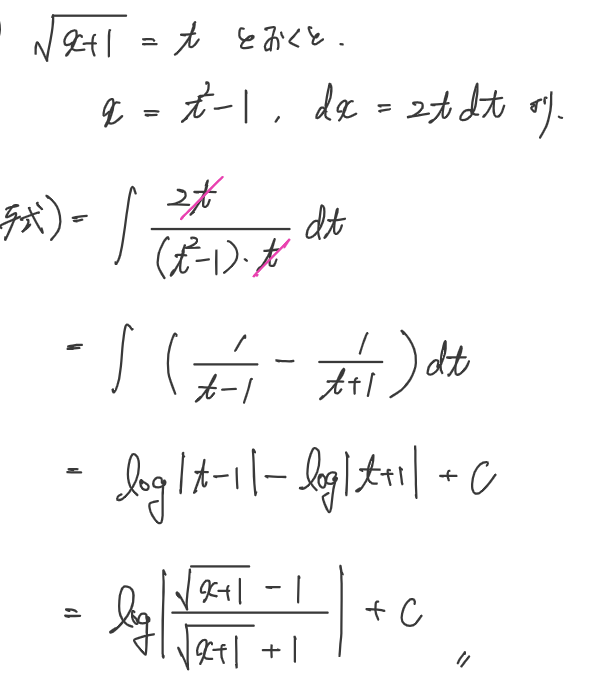 ) √(x+1) = t とおくと.
x = t²-1 , dx = 2t dt より.
与式) = ∫ 2t / ((t²-1)・t) dt
= ∫ ( 1/(t-1) - 1/(t+1) ) dt
= log|t-1| - log|t+1| + C
= log| (√(x+1) - 1) / (√(x+1) + 1) | + C 〃